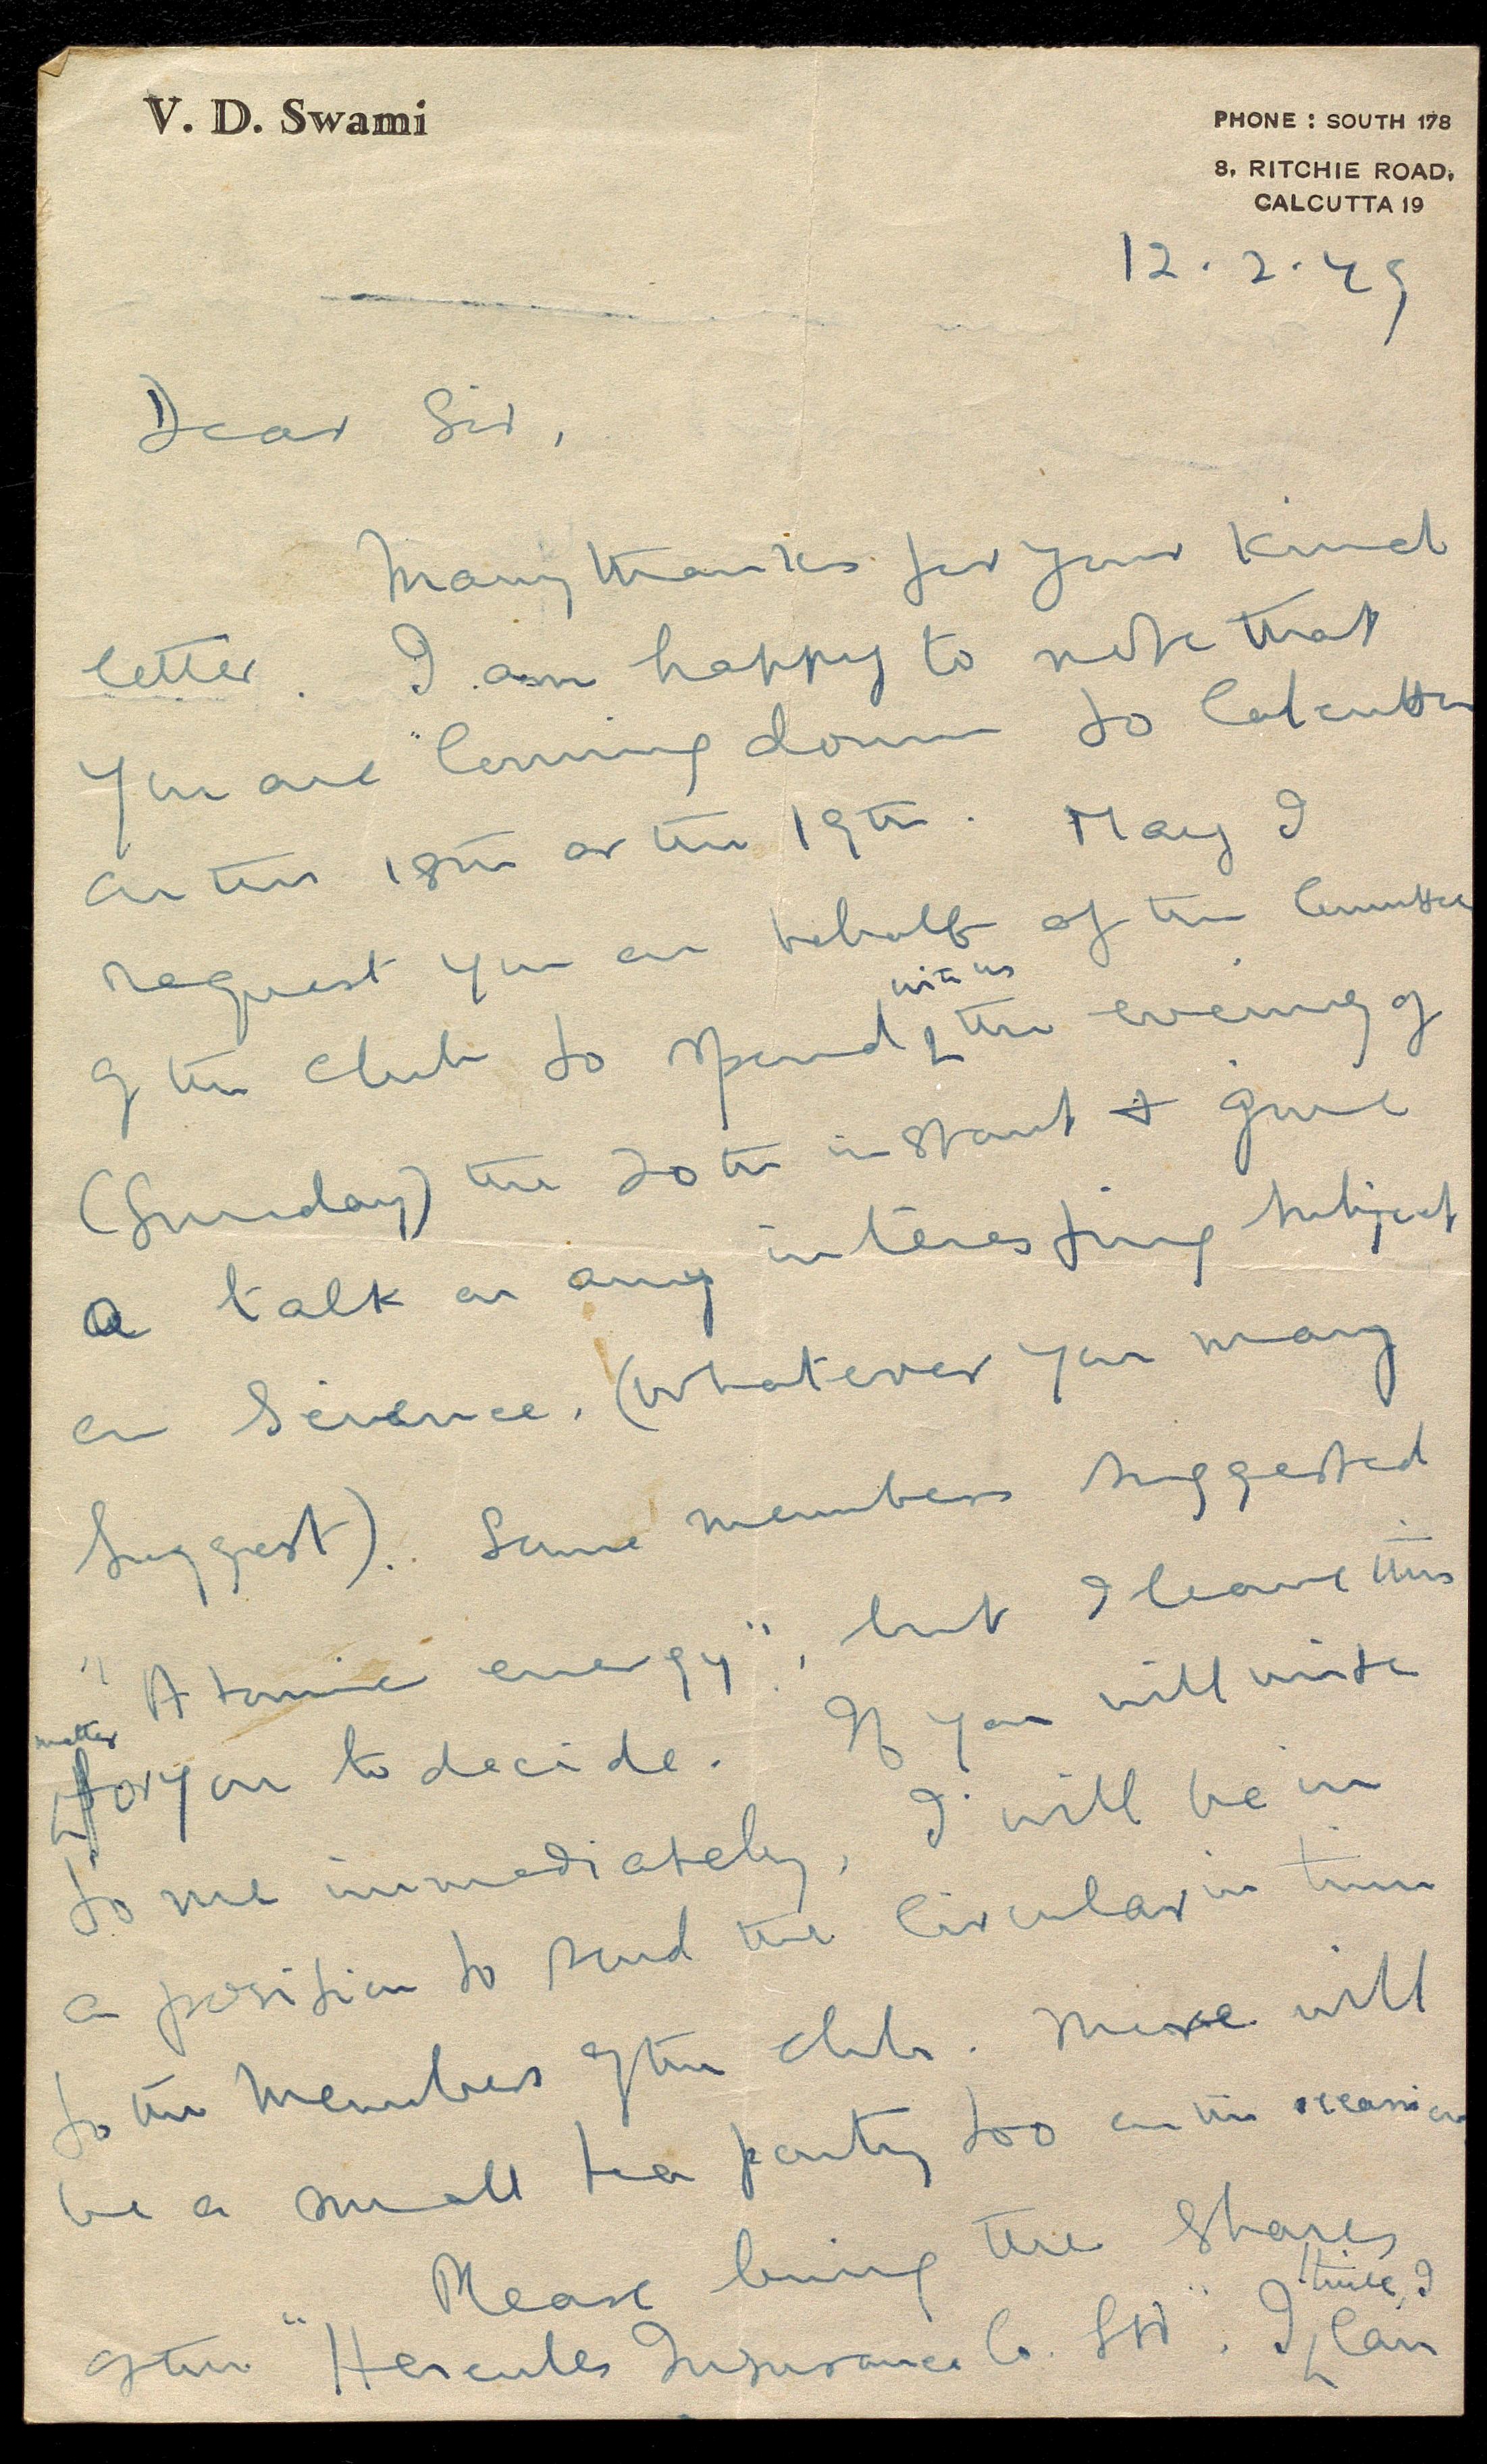 V. D. Swami
PHONE : SOUTH 178
8, RITCHIE ROAD,
CALCUTTA 19
12.2.49
Dear Sir,
Many thanks for your kind
letter. I am happy to note that
you are coming down to Calcutta
on the 18th or the 19th. May I
request you on behalf of the Committee
of the Club to spend with us the evening of
(Sunday) the 20th instant & give
a talk on any interesting subject
on Science. (Whatever you may
suggest). Some members suggested
"Atomic energy", but I leave this
matter for you to decide. If you will write
to me immediately, I will be in
a position to send the Circular in time
to the Members of the Club. There will
be a small tea party too on the occasion
Please bring the Shares
of the "Hercules Insurance Co. Ltd". I think, I can